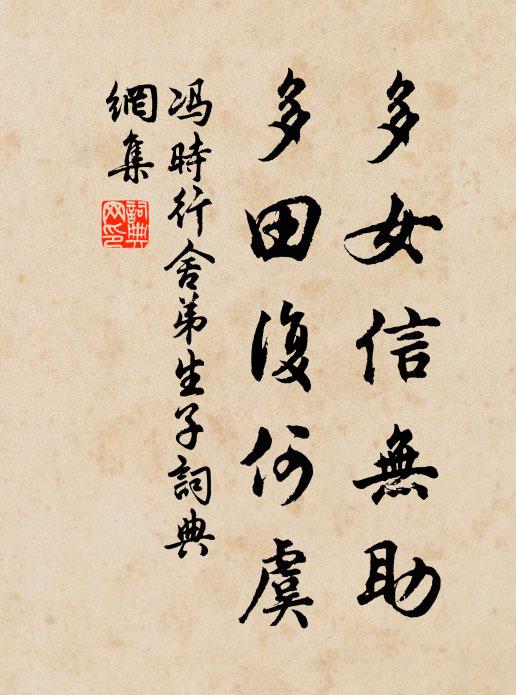 多女信無助
多田復何虞
馮時行舍弟生子詞典
網集
詞典
網印